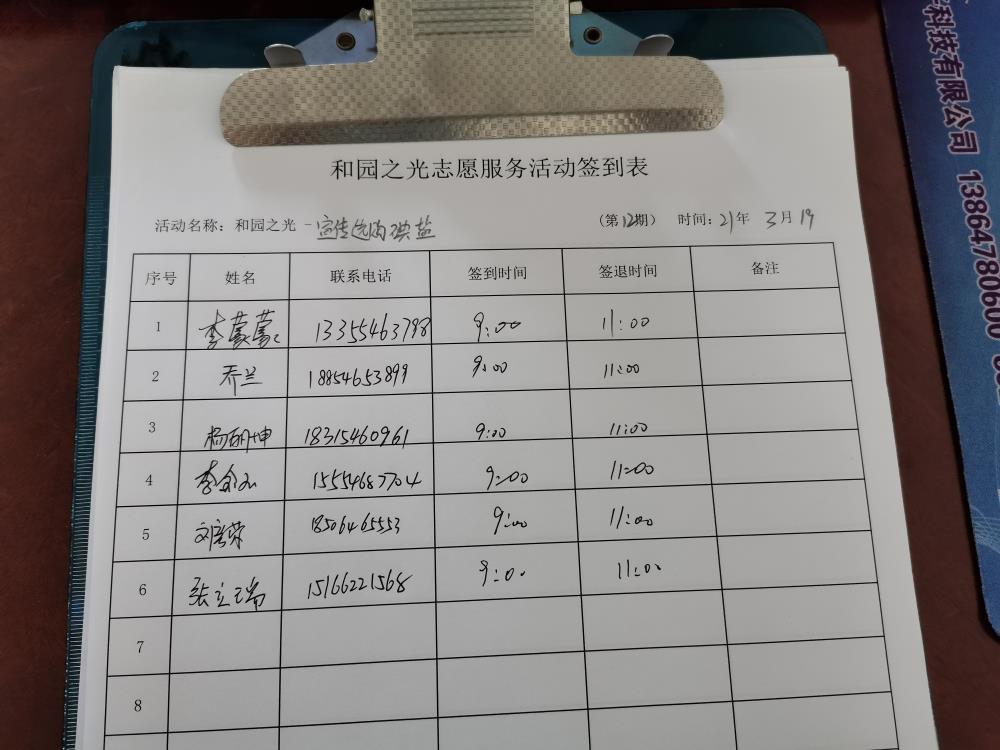 和园之光志愿服务活动签到表
活动名称：和园之光 - 宣传选购碘盐
（第12期） 时间：21年 3月 19
序号 姓名 联系电话 签到时间 签退时间 备注
1 李蒙蒙 13355463798 9:00 11:00
2 乔兰 18854653899 9:00 11:00
3 杨丽坤 18315460961 9:00 11:00
4 李 15554687704 9:00 11:00
5 刘培荣 18506465553 9:00 11:00
6 张立瑞 15166221568 9:00 11:00
7
8
科技有限公司 13864780600